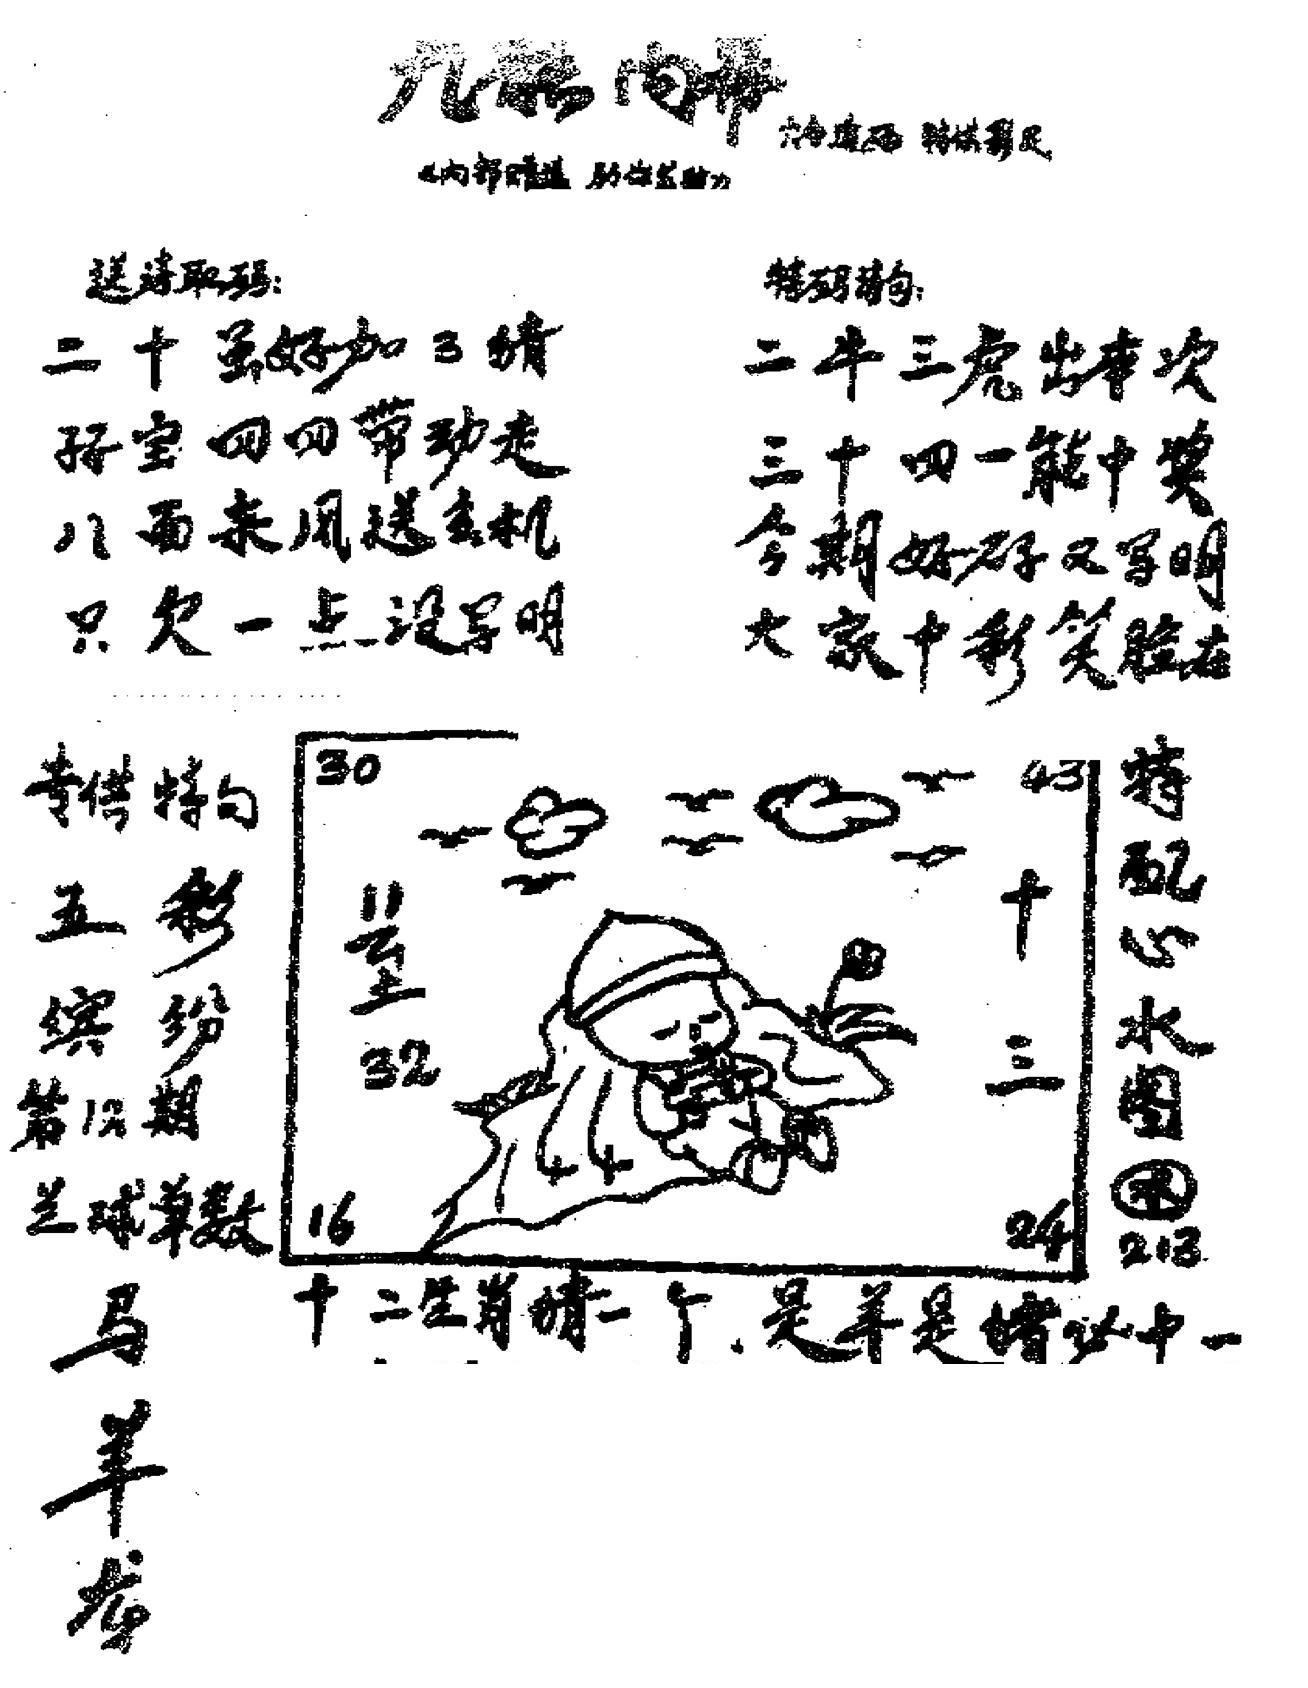 九龙内幕
六合透码 特供彩民
《内部精选 助你发财》
送诗取码:
二十虽好加3猜
孖宝四四带动走
八面来风送玄机
只欠一点没写明
特码诗句:
二牛三虎出来次
三十四一能中奖
今期好孖又写明
大家中彩笑腔在
专供特句
五彩
缤纷
第 期
兰球单数
马
羊
龙
30
43
32
十
三
16
24
特
配
心
水
图
213
十二生肖猜一个.是羊是猪必中一